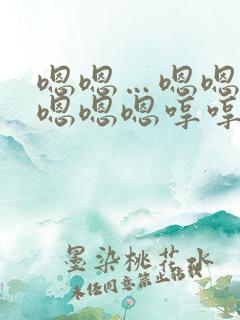 嗯嗯…嗯嗯
嗯嗯嗯哼哼
墨染桃花水
未经同意禁止转载